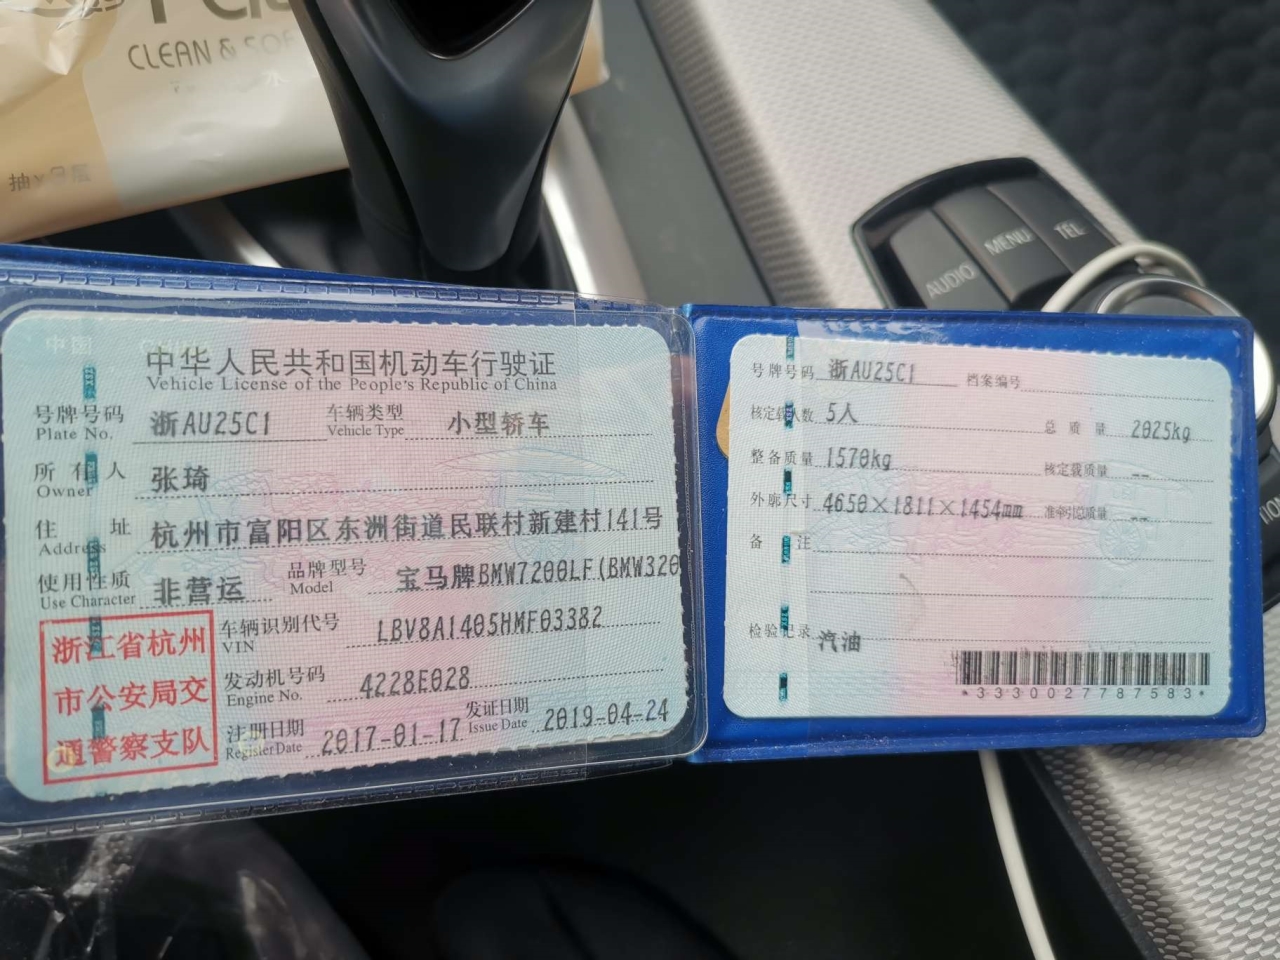 CLEAN & SOF
AUDIO
MENU
TEL
中华人民共和国机动车行驶证
Vehicle License of the People's Republic of China
号牌号码 浙AU25C1 车辆类型 小型轿车
Plate No. Vehicle Type
所有人 张琦
Owner
住址 杭州市富阳区东洲街道民联村新建村141号
Address
使用性质 非营运 品牌型号 宝马牌BMW7200LF(BMW320
Use Character Model
浙江省杭州
市公安局交
通警察支队
车辆识别代号 LBV8A1405HMF03382
VIN
发动机号码 4228E028
Engine No.
注册日期 2017-01-17 发证日期 2019-04-24
Register Date Issue Date
号牌号码 浙AU25C1 档案编号
核定载人数 5人 总质量 2025kg
整备质量 1570kg 核定载质量 --
外廓尺寸 4650×1811×1454mm 准牵引总质量 --
备注
检验记录 汽油
*3330027787583*